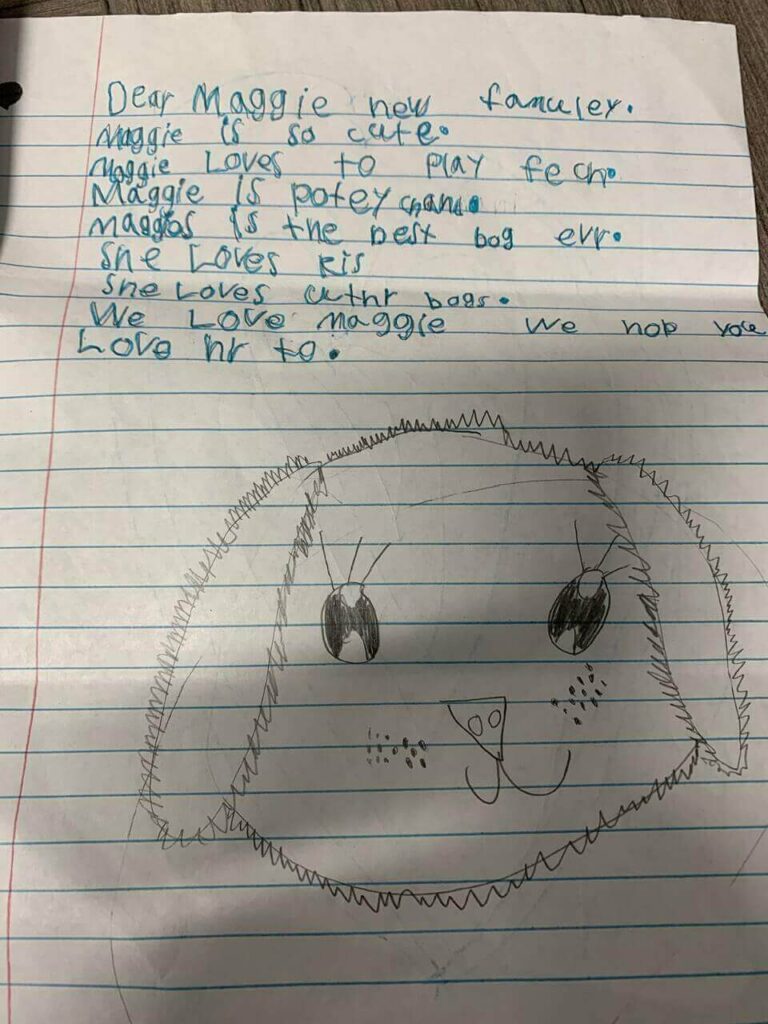 Dear Maggie new famuley.
Maggie is so cute.
Maggie Loves to play fech.
Maggie is potey chand.
Maggios is the best bog evr.
She Loves Kis
She Loves uthr bogs.
We Love Maggie We hop you
Love hr to.